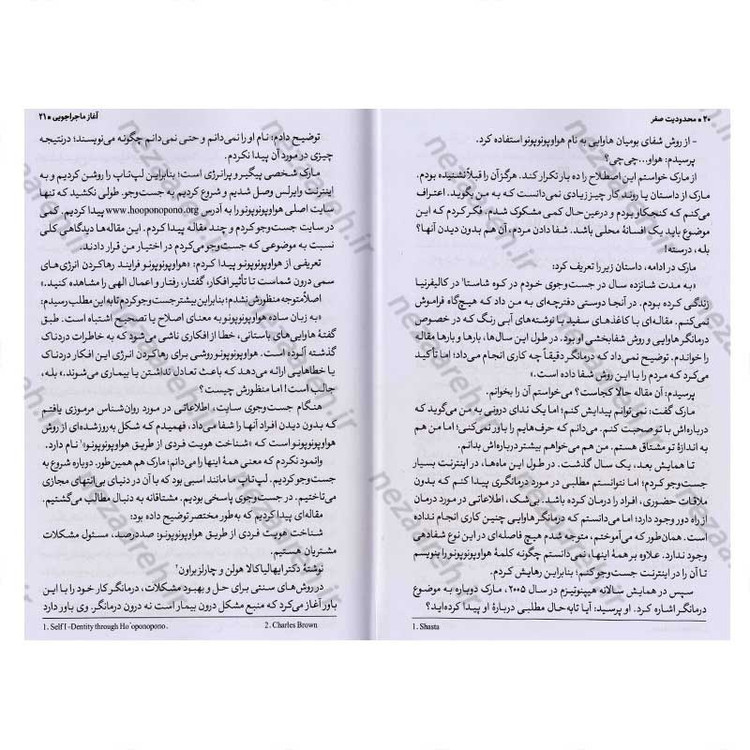 ۲۰ ● محدودیت صفر
- از روش شفای بومیان هاوایی به نام هواوپونوپونو استفاده کرد.
پرسیدم: هواو...چی‌چی؟
از مارک خواستم این اصطلاح را ده بار تکرار کند. هرگز آن را قبلاً نشنیده بودم.
مارک از داستان یا روند کار چیز زیادی نمی‌دانست که به من بگوید. اعتراف
می‌کنم که کنجکاو بودم و درعین‌حال کمی مشکوک شدم. فکر کردم که این
موضوع باید یک افسانهٔ محلی باشد. شفا دادن مردم، آن هم بدون دیدن آنها؟
بله، درسته!
مارک در ادامه، داستان زیر را تعریف کرد:
«به مدت شانزده سال در جست‌وجوی خودم در کوه شاستا¹ در کالیفرنیا
زندگی کرده بودم. در آنجا دوستی دفترچه‌ای به من داد که هیچ‌گاه فراموش
نمی‌کنم. مقاله‌ای با کاغذهای سفید با نوشته‌های آبی رنگ که در خصوص
درمانگر هاوایی و روش شفابخشی او بود. در طول این سال‌ها، بارها و بارها مقاله
را خواندم. توضیح نمی‌داد که درمانگر دقیقاً چه کاری انجام می‌داد؛ اما تأکید
می‌کرد که مردم را با این روش شفا داده است.»
پرسیدم: آن مقاله حالا کجاست؟ می‌خواستم آن را بخوانم.
مارک گفت: نمی‌توانم پیدایش کنم؛ اما یک ندای درونی به من می‌گوید که
درباره‌اش با تو صحبت کنم. می‌دانم که حرف‌هایم را باور نمی‌کنی؛ اما من هم
به اندازهٔ تو مشتاق هستم. من هم می‌خواهم بیشتر درباره‌اش بدانم.
تا همایش بعد، یک سال گذشت. در طول این ماه‌ها، در اینترنت بسیار
جست‌وجو کردم؛ اما نتوانستم مطلبی در مورد درمانگری پیدا کنم که بدون
ملاقات حضوری، افراد را درمان کرده باشد. بی‌شک، اطلاعاتی در مورد درمان
از راه دور وجود دارد؛ اما می‌دانستم که درمانگر هاوایی چنین کاری انجام نداده
است. همان‌طور که می‌آموختم، متوجه شدم هیچ فاصله‌ای در این نوع شفادهی
وجود ندارد. علاوه بر همهٔ اینها، نمی‌دانستم چگونه کلمهٔ هواوپونوپونو را بنویسم
تا آن را در اینترنت جست‌وجو کنم؛ بنابراین رهایش کردم.
سپس در همایش سالانه هیپنوتیزم در سال ۲۰۰۵، مارک دوباره به موضوع
درمانگر اشاره کرد. او پرسید: آیا تابه‌حال مطلبی دربارهٔ او پیدا کرده‌اید؟
1. Shasta
آغاز ماجراجویی ● ۲۱
توضیح دادم: نام او را نمی‌دانم و حتی نمی‌دانم چگونه می‌نویسند؛ درنتیجه
چیزی در مورد آن پیدا نکردم.
مارک شخصی پیگیر و پرانرژی است؛ بنابراین لپ‌تاپ را روشن کردیم و به
اینترنت وایرلس وصل شدیم و شروع کردیم به جست‌وجو. طولی نکشید که تنها
سایت اصلی هواوپونوپونو را به آدرس www.hooponopono.org پیدا کردیم. کمی
در سایت جست‌وجو کردم و چند مقاله پیدا کردم. این مقاله‌ها دیدگاهی کلی
نسبت به موضوعی که جست‌وجو می‌کردم در اختیار من قرار دادند.
تعریفی از هواوپونوپونو پیدا کردم: «هواوپونوپونو فرایند رها کردن انرژی‌های
سمی درون شماست تا تأثیر افکار، گفتار، رفتار و اعمال الهی را مشاهده کنید.»
اصلاً متوجه منظورش نشدم؛ بنابراین بیشتر جست‌وجو کردم تا به این مطلب رسیدم:
«به زبان ساده هواوپونوپونو به معنای اصلاح یا تصحیح اشتباه است. طبق
گفتهٔ هاوایی‌های باستانی، خطا از افکاری ناشی می‌شود که به خاطرات دردناک
گذشته آلوده است. هواوپونوپونو روشی برای رها کردن انرژی این افکار دردناک
یا خطاهایی ارائه می‌دهد که باعث عدم تعادل نداشتن یا بیماری می‌شوند.» بله،
جالب است! اما منظورش چیست؟
هنگام جست‌وجوی سایت، اطلاعاتی در مورد روان‌شناس مرموزی یافتم
که بدون دیدن افراد آنها را شفا می‌داد، فهمیدم که شکل به‌روزشده‌ای از روش
هواوپونوپونو است که «شناخت هویت فردی از طریق هواوپونوپونو¹» نام دارد.
وانمود نکردم که معنی همهٔ اینها را می‌دانم؛ مارک هم همین‌طور. دوباره شروع به
جست‌وجو کردیم. لپ‌تاپ ما مانند اسبی بود که با آن در دنیای بی‌انتهای مجازی
می‌تاختیم. در جست‌وجوی پاسخی بودیم. مشتاقانه به دنبال مطالب می‌گشتیم.
مقاله‌ای پیدا کردیم که به‌طور مختصر توضیح داده بود:
شناخت هویت فردی از طریق هواوپونوپونو: صددرصد، مسئول مشکلات
مشتریان هستیم.
نوشتهٔ دکتر ایهالیاکالا هولن و چارلز براون²
در روش‌های سنتی برای حل و بهبود مشکلات، درمانگر کار خود را با این
باور آغاز می‌کرد که منبع مشکل درون بیمار است نه درون درمانگر. وی باور دارد
1. Self I-Dentity through Ho'oponopono.
2. Charles Brown
nezaareh.ir